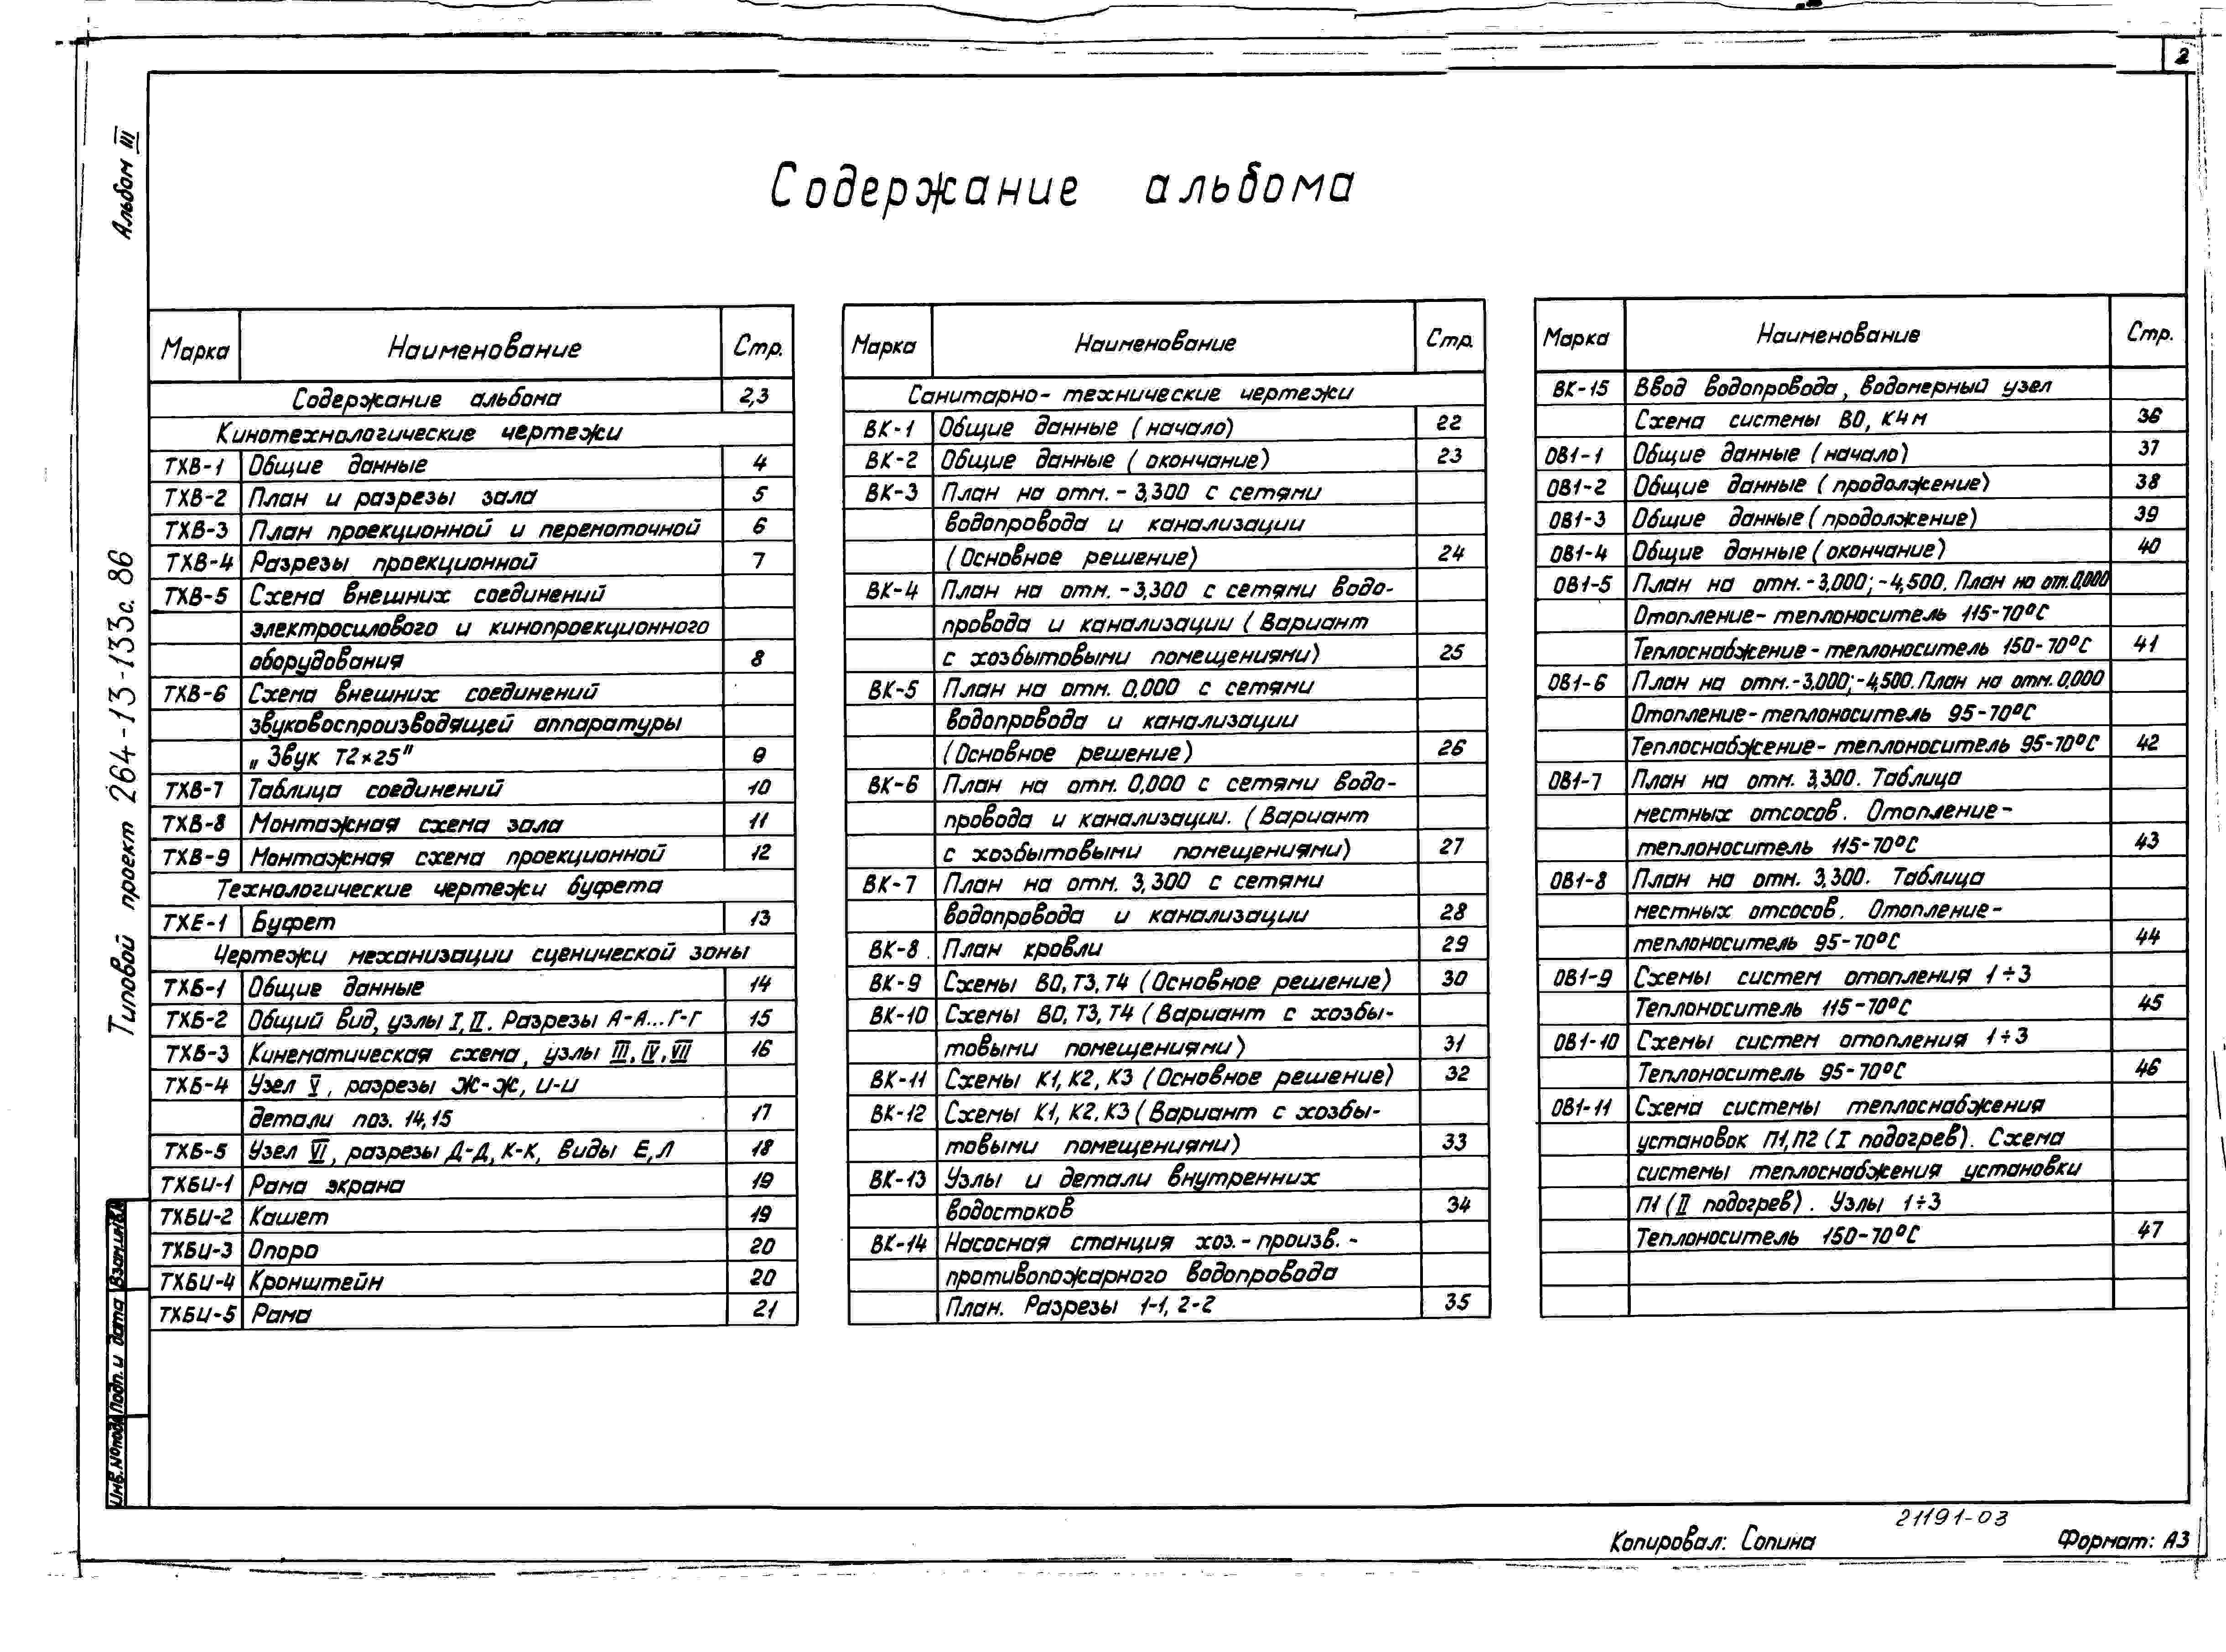 2
Альбом III
Типовой проект 264-13-133с.86
Содержание альбома
Марка Наименование Стр.
Содержание альбома 2,3
Кинотехнологические чертежи
ТХВ-1 Общие данные 4
ТХВ-2 План и разрезы зала 5
ТХВ-3 План проекционной и перемоточной 6
ТХВ-4 Разрезы проекционной 7
ТХВ-5 Схема внешних соединений
электросилового и кинопроекционного
оборудования 8
ТХВ-6 Схема внешних соединений
звуковоспроизводящей аппаратуры
„Звук Т2×25" 9
ТХВ-7 Таблица соединений 10
ТХВ-8 Монтажная схема зала 11
ТХВ-9 Монтажная схема проекционной 12
Технологические чертежи буфета
ТХЕ-1 Буфет 13
Чертежи механизации сценической зоны
ТХБ-1 Общие данные 14
ТХБ-2 Общий вид, узлы I, II. Разрезы А-А...Г-Г 15
ТХБ-3 Кинематическая схема, узлы III, IV, VII 16
ТХБ-4 Узел V, разрезы Ж-Ж, И-И
детали поз. 14,15 17
ТХБ-5 Узел VI, разрезы Д-Д, К-К, виды Е,Л 18
ТХБИ-1 Рама экрана 19
ТХБИ-2 Кашет 19
ТХБИ-3 Опора 20
ТХБИ-4 Кронштейн 20
ТХБИ-5 Рама 21
Марка Наименование Стр.
Санитарно-технические чертежи
ВК-1 Общие данные (начало) 22
ВК-2 Общие данные (окончание) 23
ВК-3 План на отм. -3,300 с сетями
водопровода и канализации
(Основное решение) 24
ВК-4 План на отм. -3,300 с сетями водо-
провода и канализации (Вариант
с хозбытовыми помещениями) 25
ВК-5 План на отм. 0,000 с сетями
водопровода и канализации
(Основное решение) 26
ВК-6 План на отм. 0,000 с сетями водо-
провода и канализации. (Вариант
с хозбытовыми помещениями) 27
ВК-7 План на отм. 3,300 с сетями
водопровода и канализации 28
ВК-8 План кровли 29
ВК-9 Схемы В0, Т3, Т4 (Основное решение) 30
ВК-10 Схемы В0, Т3, Т4 (Вариант с хозбы-
товыми помещениями) 31
ВК-11 Схемы К1, К2, К3 (Основное решение) 32
ВК-12 Схемы К1, К2, К3 (Вариант с хозбы-
товыми помещениями) 33
ВК-13 Узлы и детали внутренних
водостоков 34
ВК-14 Насосная станция хоз.-произв.-
противопожарного водопровода
План. Разрезы 1-1, 2-2 35
Марка Наименование Стр.
ВК-15 Ввод водопровода, водомерный узел
Схема системы В0, К4н 36
ОВ1-1 Общие данные (начало) 37
ОВ1-2 Общие данные (продолжение) 38
ОВ1-3 Общие данные (продолжение) 39
ОВ1-4 Общие данные (окончание) 40
ОВ1-5 План на отм. -3,000; -4,500. План на от. 0,000
Отопление-теплоноситель 115-70°С
Теплоснабжение-теплоноситель 150-70°С 41
ОВ1-6 План на отм. -3,000; -4,500. План на отм. 0,000
Отопление-теплоноситель 95-70°С
Теплоснабжение-теплоноситель 95-70°С 42
ОВ1-7 План на отм. 3,300. Таблица
местных отсосов. Отопление-
теплоноситель 115-70°С 43
ОВ1-8 План на отм. 3,300. Таблица
местных отсосов. Отопление-
теплоноситель 95-70°С 44
ОВ1-9 Схемы систем отопления 1÷3
Теплоноситель 115-70°С 45
ОВ1-10 Схемы систем отопления 1÷3
Теплоноситель 95-70°С 46
ОВ1-11 Схема системы теплоснабжения
установок П1, П2 (I подогрев). Схема
системы теплоснабжения установки
П1 (II подогрев). Узлы 1÷3
Теплоноситель 150-70°С 47
Взам.инв.№
Подп. и дата
Инв.№подл.
21191-03
Копировал: Сопина
Формат: А3